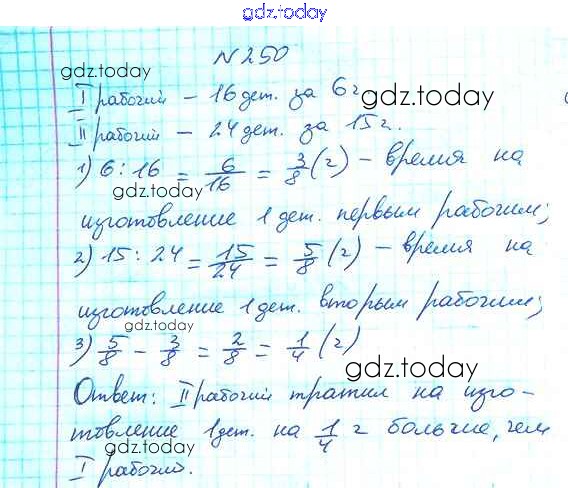 gdz.today
N 250
gdz.today
I рабочий – 16 дет. за 6 г
gdz.today
II рабочий – 24 дет. за 15 г.
1) 6 : 16 = 6/16 = 3/8 (г) – время на
gdz.today
изготовление 1 дет. первым рабочим;
2) 15 : 24 = 15/24 = 5/8 (г) – время на
gdz.today
изготовление 1 дет. вторым рабочим;
gdz.today
3) 5/8 – 3/8 = 2/8 = 1/4 (г)
gdz.today
Ответ: II рабочий тратил на изго-
товление 1 дет. на 1/4 г больше, чем
gdz.today
I рабочий.